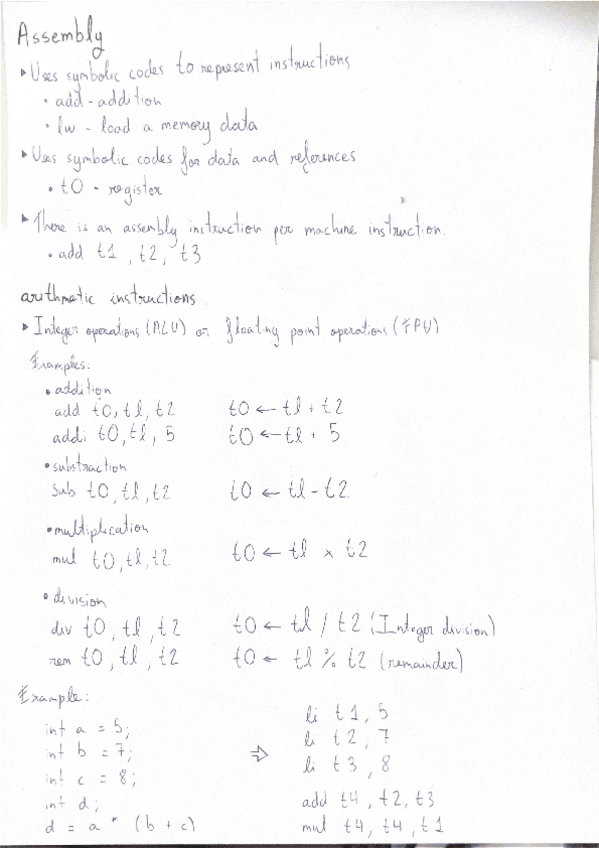 Assembly
▸ Uses symbolic codes to represent instructions
• add - addition
• lw - load a memory data
▸ Uses symbolic codes for data and references
• t0 - register
▸ There is an assembly instruction per machine instruction.
• add t1, t2, t3
arithmetic instructions
▸ Integer operations (ALU) or floating point operations (FPU)
Examples:
• addition
add t0, t1, t2 t0 ← t1 + t2
addi t0, t1, 5 t0 ← t1 + 5
• substraction
sub t0, t1, t2 t0 ← t1 - t2
• multiplication
mul t0, t1, t2 t0 ← t1 x t2
• division
div t0, t1, t2 t0 ← t1 / t2 (Integer division)
rem t0, t1, t2 t0 ← t1 % t2 (remainder)
Example:
int a = 5;
int b = 7;
int c = 8;
int d;
d = a * (b + c)
⇒
li t1, 5
li t2, 7
li t3, 8
add t4, t2, t3
mul t4, t4, t1